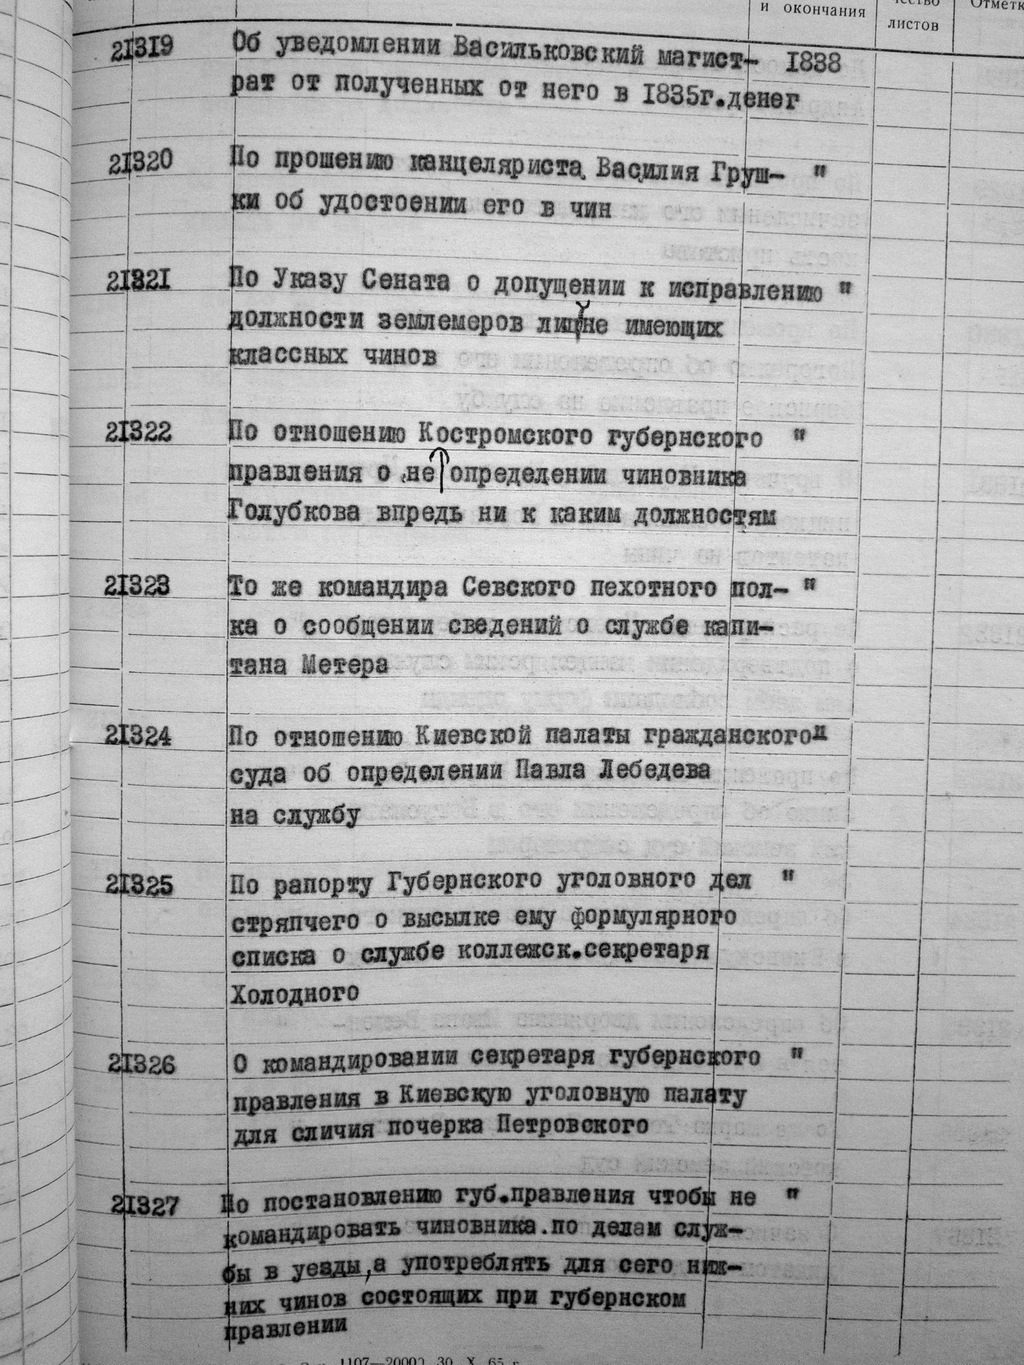 и окончания
листов
21319 Об уведомлении Васильковский магист- 1838
рат от полученных от него в 1835г.денег
21320 По прошению канцеляриста Василия Груш- "
ки об удостоении его в чин
21321 По Указу Сената о допущении к исправлению "
должности землемеров лиц не имеющих
классных чинов
21322 По отношению Костромского губернского "
правления о не определении чиновника
Голубкова впредь ни к каким должностям
21323 То же командира Севского пехотного пол- "
ка о сообщении сведений о службе капи-
тана Метера
21324 По отношению Киевской палаты гражданского "
суда об определении Павла Лебедева
на службу
21325 По рапорту Губернского уголовного дел "
стряпчего о высылке ему формулярного
списка о службе коллежск.секретаря
Холодного
21326 О командировании секретаря губернского "
правления в Киевскую уголовную палату
для сличия почерка Петровского
21327 По постановлению губ.правления чтобы не "
командировать чиновника.по делам служ-
бы в уезды,а употреблять для сего ниж-
них чинов состоящих при губернском
правлении